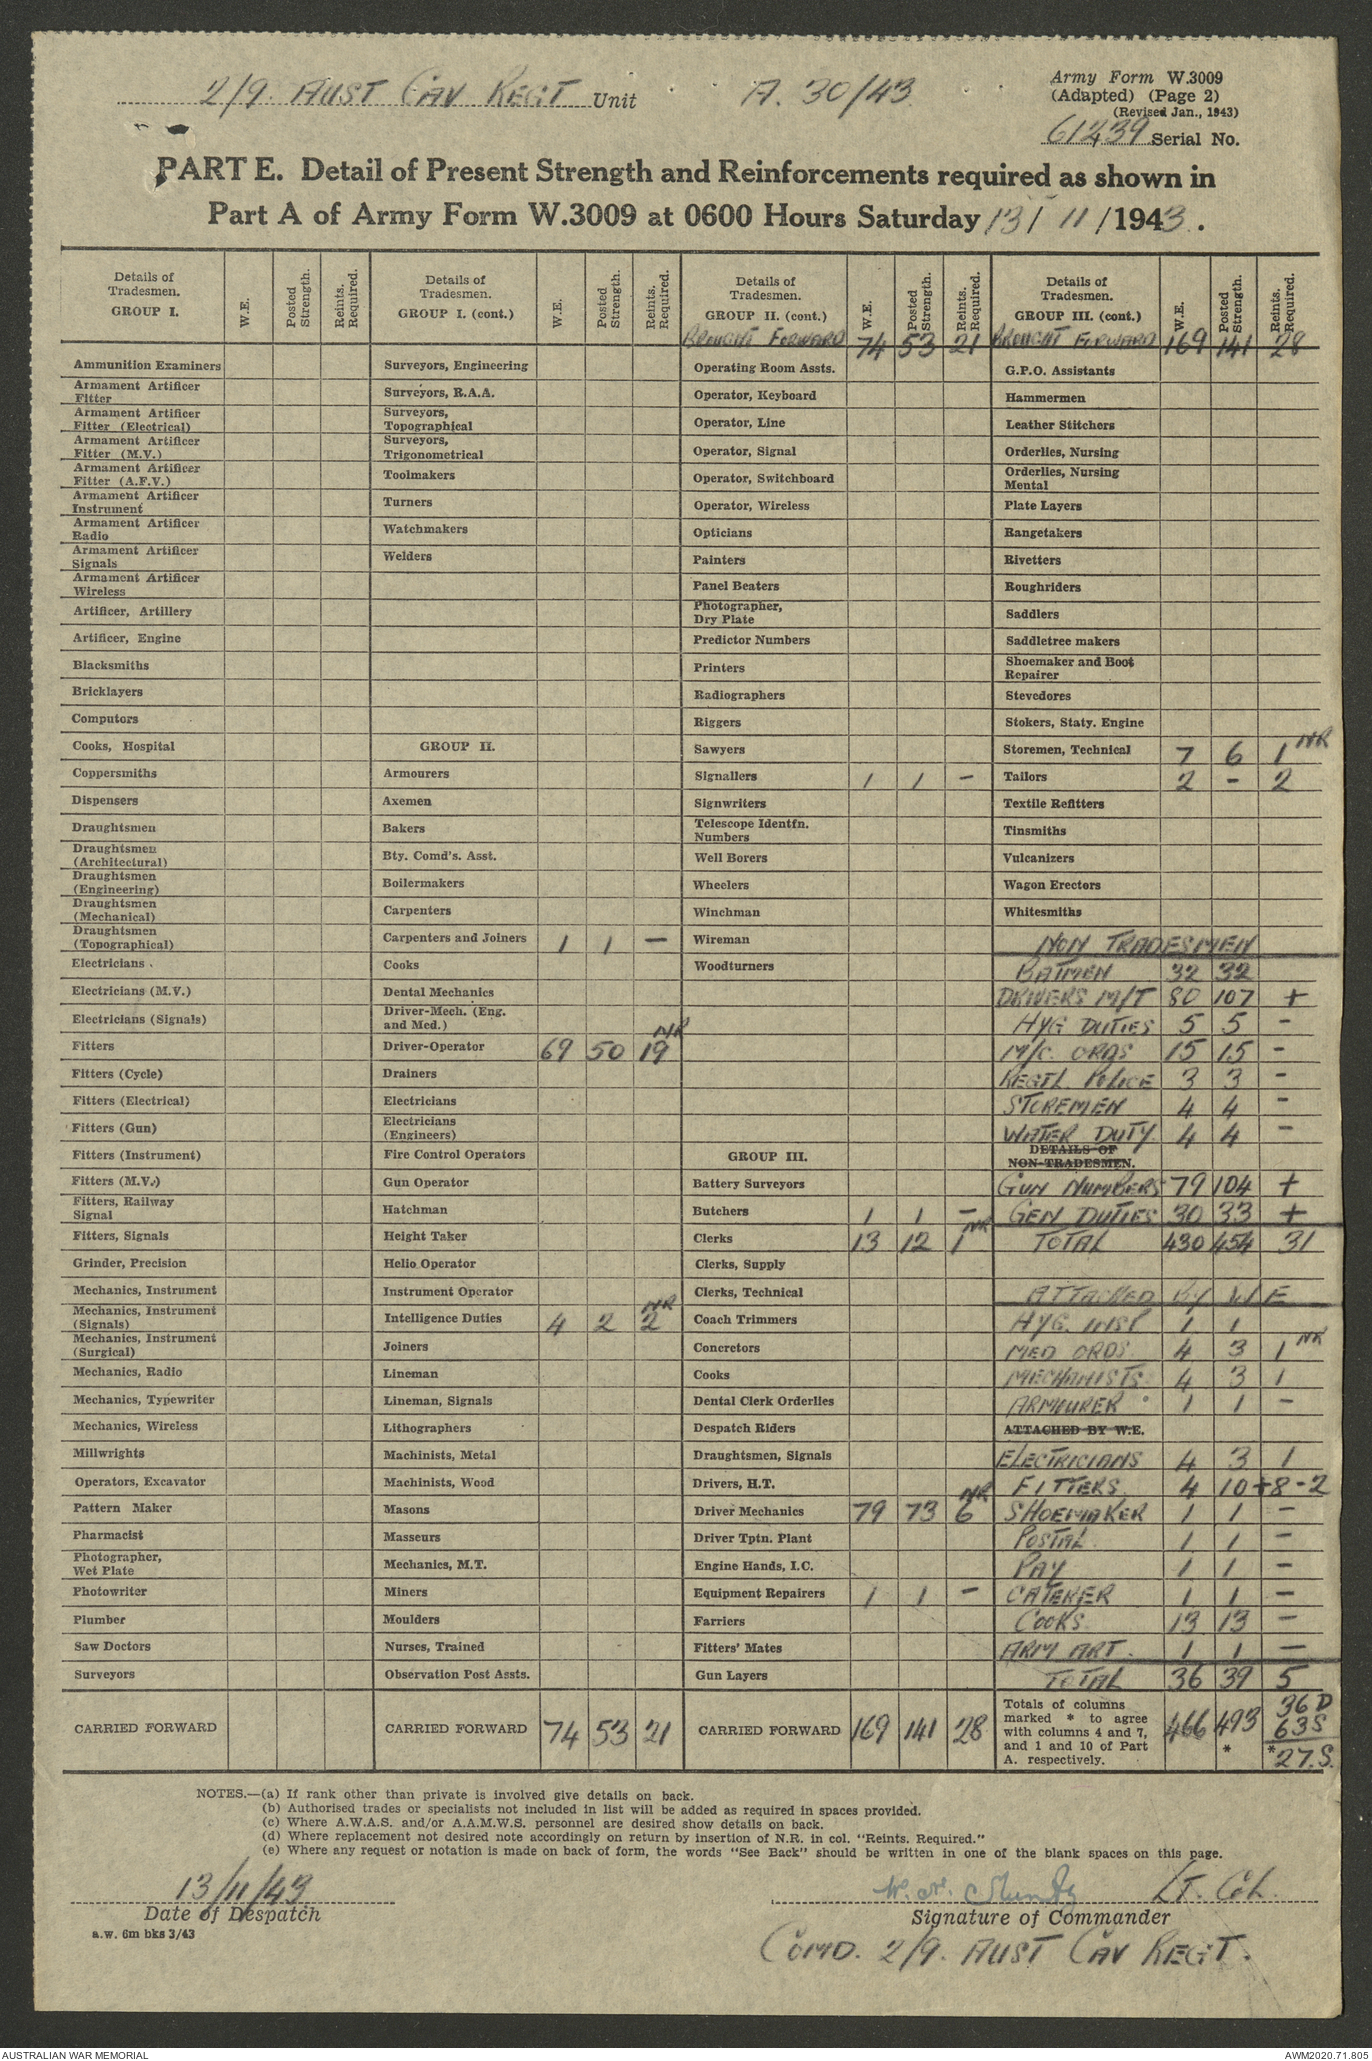 2/9. AUST CAV REGT Unit A. 30/43
Army Form W.3009
(Adapted) (Page 2)
(Revised Jan., 1943)
61239 Serial No.
PART E. Detail of Present Strength and Reinforcements required as shown in
Part A of Army Form W.3009 at 0600 Hours Saturday 13/ 11 /1943.
Details of Tradesmen. GROUP I. W.E. Posted Strength. Reints. Required.
Ammunition Examiners
Armament Artificer Fitter
Armament Artificer Fitter (Electrical)
Armament Artificer Fitter (M.V.)
Armament Artificer Fitter (A.F.V.)
Armament Artificer Instrument
Armament Artificer Radio
Armament Artificer Signals
Armament Artificer Wireless
Artificer, Artillery
Artificer, Engine
Blacksmiths
Bricklayers
Computors
Cooks, Hospital
Coppersmiths
Dispensers
Draughtsmen
Draughtsmen (Architectural)
Draughtsmen (Engineering)
Draughtsmen (Mechanical)
Draughtsmen (Topographical)
Electricians
Electricians (M.V.)
Electricians (Signals)
Fitters
Fitters (Cycle)
Fitters (Electrical)
Fitters (Gun)
Fitters (Instrument)
Fitters (M.V.)
Fitters, Railway Signal
Fitters, Signals
Grinder, Precision
Mechanics, Instrument
Mechanics, Instrument (Signals)
Mechanics, Instrument (Surgical)
Mechanics, Radio
Mechanics, Typewriter
Mechanics, Wireless
Millwrights
Operators, Excavator
Pattern Maker
Pharmacist
Photographer, Wet Plate
Photowriter
Plumber
Saw Doctors
Surveyors
CARRIED FORWARD
Details of Tradesmen. GROUP I. (cont.) W.E. Posted Strength. Reints. Required.
Surveyors, Engineering
Surveyors, R.A.A.
Surveyors, Topographical
Surveyors, Trigonometrical
Toolmakers
Turners
Watchmakers
Welders
GROUP II.
Armourers
Axemen
Bakers
Bty. Comd's. Asst.
Boilermakers
Carpenters
Carpenters and Joiners 1 1 —
Cooks
Dental Mechanics
Driver-Mech. (Eng. and Med.)
Driver-Operator 69 50 19 NR
Drainers
Electricians
Electricians (Engineers)
Fire Control Operators
Gun Operator
Hatchman
Height Taker
Helio Operator
Instrument Operator
Intelligence Duties 4 2 2 NR
Joiners
Lineman
Lineman, Signals
Lithographers
Machinists, Metal
Machinists, Wood
Masons
Masseurs
Mechanics, M.T.
Miners
Moulders
Nurses, Trained
Observation Post Assts.
CARRIED FORWARD 74 53 21
Details of Tradesmen. GROUP II. (cont.) W.E. Posted Strength. Reints. Required.
BROUGHT FORWARD 74 53 21
Operating Room Assts.
Operator, Keyboard
Operator, Line
Operator, Signal
Operator, Switchboard
Operator, Wireless
Opticians
Painters
Panel Beaters
Photographer, Dry Plate
Predictor Numbers
Printers
Radiographers
Riggers
Sawyers
Signallers 1 1 —
Signwriters
Telescope Identfn. Numbers
Well Borers
Wheelers
Winchman
Wireman
Woodturners
GROUP III.
Battery Surveyors
Butchers 1 1 —
Clerks 13 12 1 NR
Clerks, Supply
Clerks, Technical
Coach Trimmers
Concretors
Cooks
Dental Clerk Orderlies
Despatch Riders
Draughtsmen, Signals
Drivers, H.T.
Driver Mechanics 79 73 6 NR
Driver Tptn. Plant
Engine Hands, I.C.
Equipment Repairers 1 1 —
Farriers
Fitters' Mates
Gun Layers
CARRIED FORWARD 169 141 28
Details of Tradesmen. GROUP III. (cont.) W.E. Posted Strength. Reints. Required.
BROUGHT FORWARD 169 141 28
G.P.O. Assistants
Hammermen
Leather Stitchers
Orderlies, Nursing
Orderlies, Nursing Mental
Plate Layers
Rangetakers
Rivetters
Roughriders
Saddlers
Saddletree makers
Shoemaker and Boot Repairer
Stevedores
Stokers, Staty. Engine
Storemen, Technical 7 6 1 NR
Tailors 2 — 2
Textile Refitters
Tinsmiths
Vulcanizers
Wagon Erectors
Whitesmiths
NON TRADESMEN
BATMEN 32 32
DRIVERS M/T 80 107 +
HYG DUTIES 5 5 —
M/C. ORDS 15 15 —
REGTL. POLICE 3 3 —
STOREMEN 4 4 —
WATER DUTY. 4 4 —
DETAILS OF NON-TRADESMEN.
GUN NUMBERS 79 104 +
GEN DUTIES 30 33 +
TOTAL 430 454 31
ATTACHED BY W/E
HYG. INSP 1 1
MED ORDS. 4 3 1 NR
MECHANISTS. 4 3 1
ARMOURER 1 1 —
ATTACHED BY W.E.
ELECTRICIANS 4 3 1
FITTERS. 4 10 +8 -2
SHOEMAKER 1 1 —
POSTAL. 1 1 —
PAY 1 1 —
CATERER 1 1 —
COOKS. 13 13 —
ARM ART. 1 1 —
TOTAL 36 39 5
Totals of columns marked * to agree with columns 4 and 7, and 1 and 10 of Part A. respectively. 466 493 * 36 D 63 S * 27. S.
NOTES.—(a) If rank other than private is involved give details on back.
(b) Authorised trades or specialists not included in list will be added as required in spaces provided.
(c) Where A.W.A.S. and/or A.A.M.W.S. personnel are desired show details on back.
(d) Where replacement not desired note accordingly on return by insertion of N.R. in col. "Reints. Required."
(e) Where any request or notation is made on back of form, the words "See Back" should be written in one of the blank spaces on this page.
13/11/43
Date of Despatch
a.w. 6m bks 3/43
LT. COL.
Signature of Commander
COMD. 2/9. AUST CAV REGT.
AUSTRALIAN WAR MEMORIAL
AWM2020.71.805